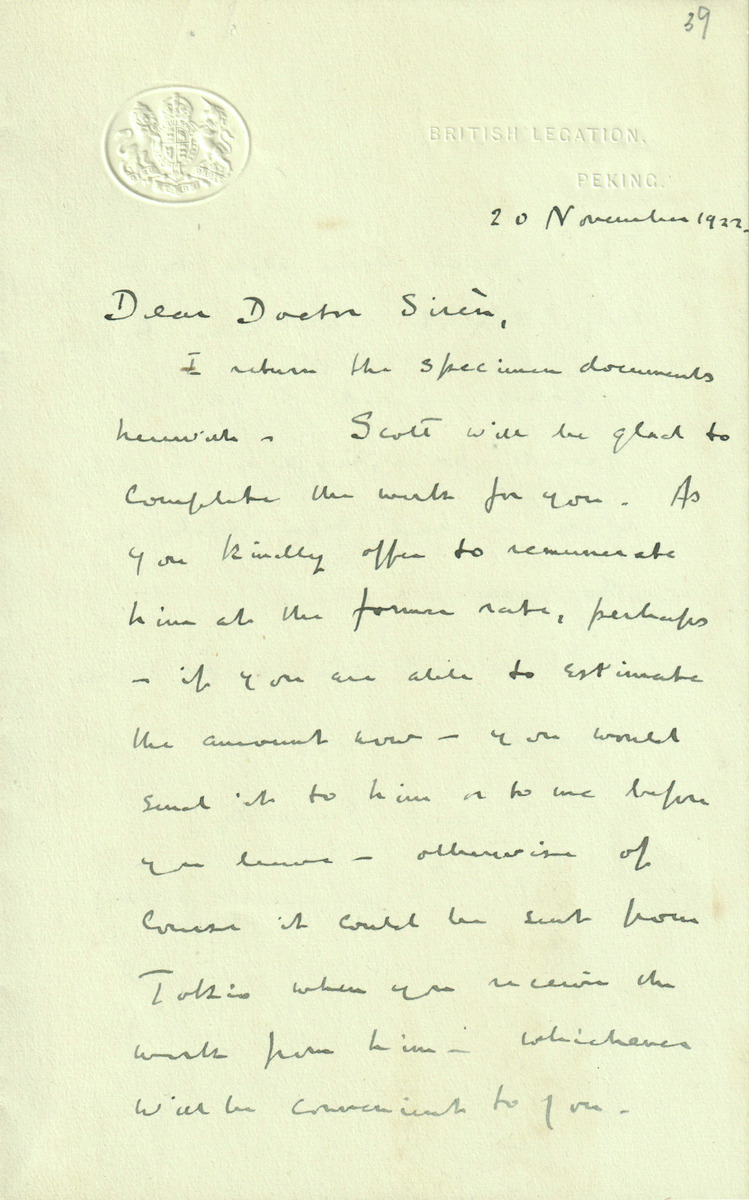 39
BRITISH LEGATION,
PEKING.
20 November 1922.
Dear Doctor Sirén,
I return the specimen documents
herewith - Scott will be glad to
complete the work for you. As
you kindly offer to remunerate
him at the former rate, perhaps
- if you are able to estimate
the amount now - you would
send it to him or to me before
you leave - otherwise of
course it could be sent from
Tokio when you receive the
work from him - whichever
will be convenient to you -